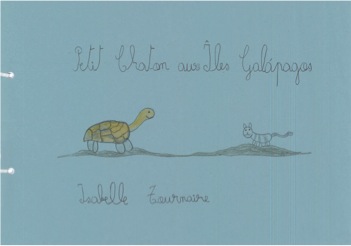 Petit Chaton aux Îles Galápagos
Isabelle Tournaire